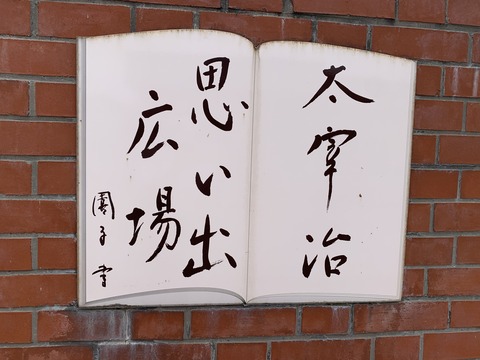 太宰治
思い出
広場
園子書